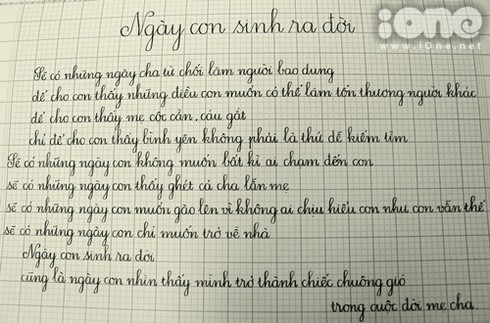 iOne
www.iOne.net
Ngày con sinh ra đời
Sẽ có những ngày cha từ chối làm người bao dung
để cho con thấy những điều con muốn có thể làm tổn thương người khác
để cho con thấy mẹ cộc cằn, cáu gắt
chỉ để cho con thấy bình yên không phải là thứ dễ kiếm tìm
Sẽ có những ngày con không muốn bất kì ai chạm đến con
sẽ có những ngày con thấy ghét cả cha lẫn mẹ
sẽ có những ngày con muốn gào lên vì không ai chịu hiểu con như con vẫn thế
sẽ có những ngày con chỉ muốn trở về nhà
Ngày con sinh ra đời
cũng là ngày con nhìn thấy mình trở thành chiếc chuông gió
trong cuộc đời mẹ cha.